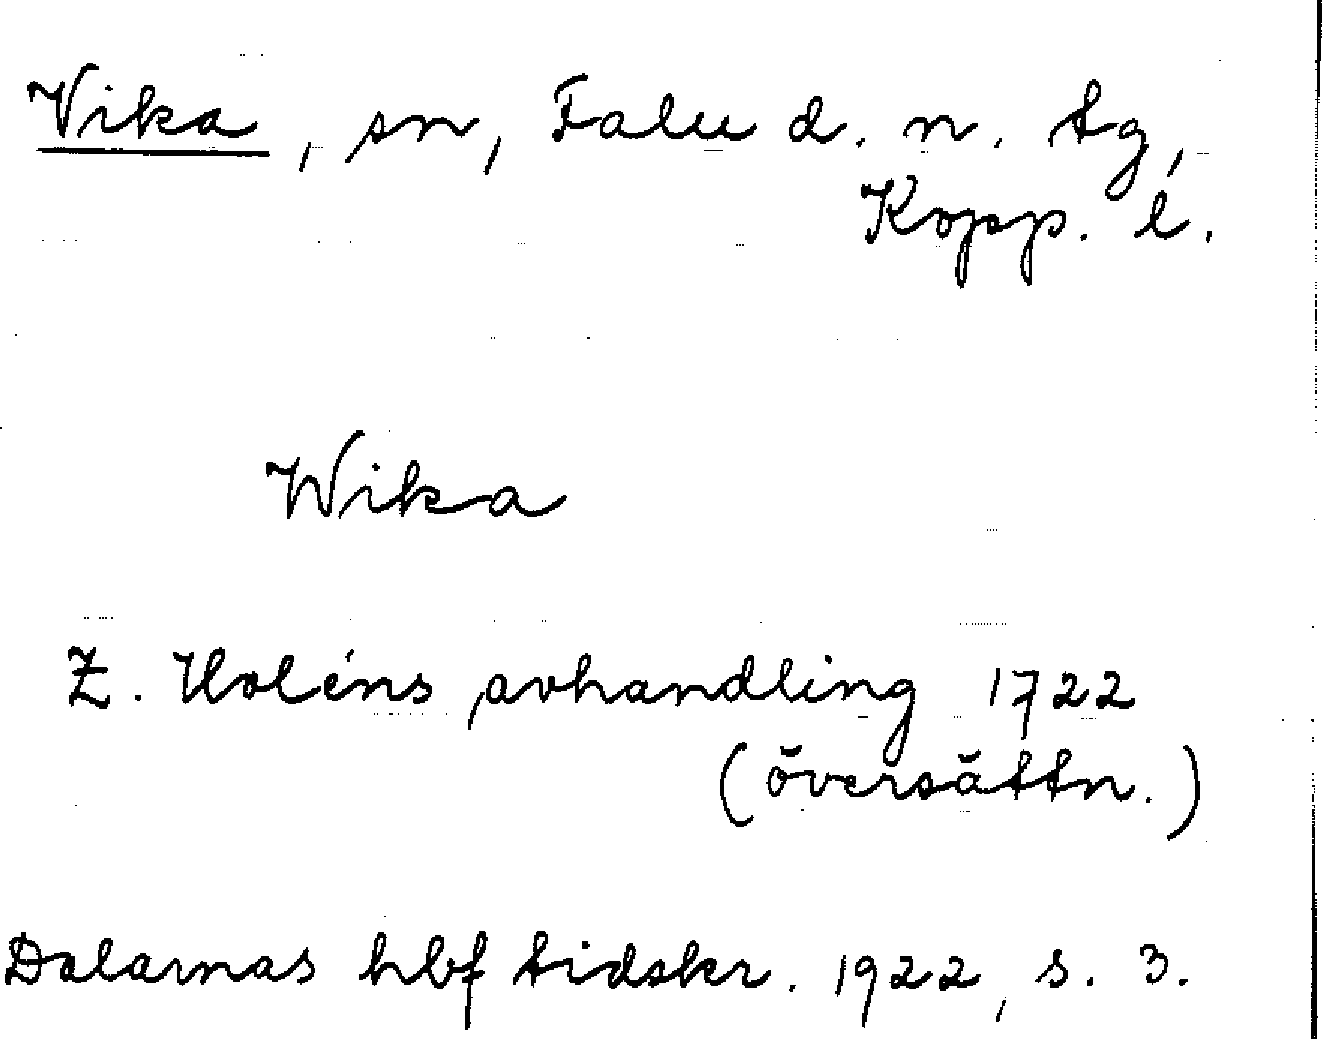 Vika, sn, Falu d. n. tg,
Kopp. l.
Wika
Z. Holéns avhandling 1722
(översättn.)
Dalarnas hbf tidskr. 1922, s. 3.